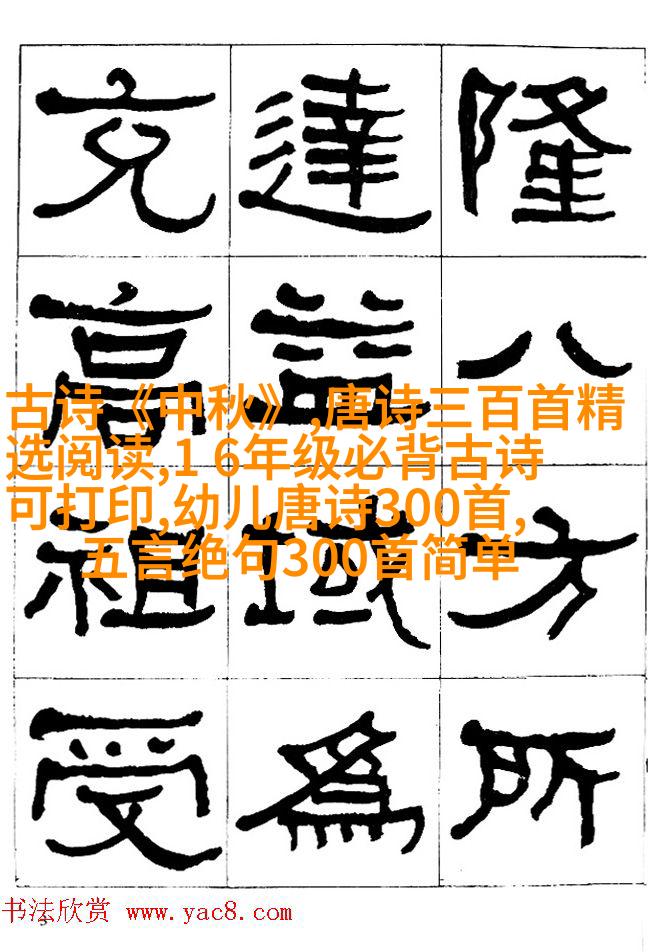 隆八方所
達益域爲
充高祖受
古诗《中秋》,唐诗三百首精
选阅读,1 6年级必背古诗
可打印,幼儿唐诗300首,
五言绝句300首简单
3
书法欣赏 www.yac8.com